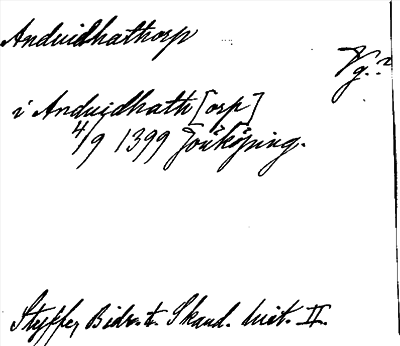 Anduidhathorp
Vg.?
i Anduidhath[orp]
4/9 1399 Jönköping.
Styffe, Bidr. t. Skand. hist. II.